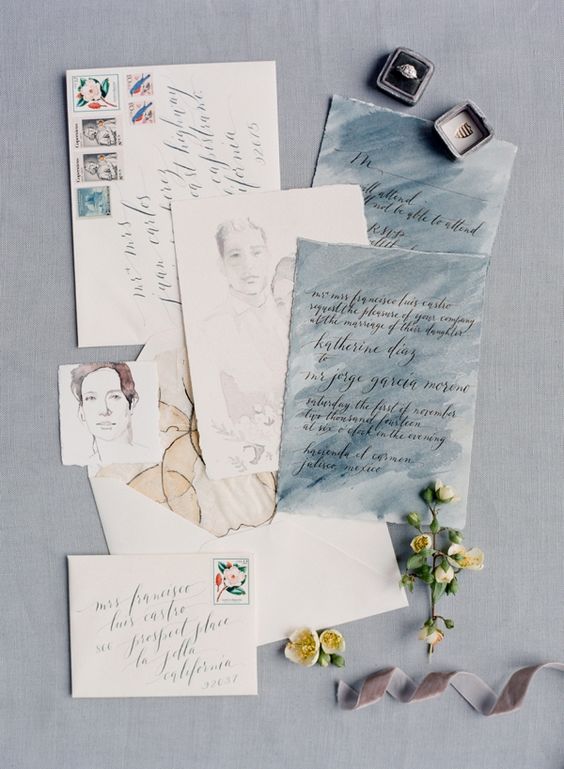 Copernicus
Copernicus
mr. mrs
juan carlos
capistrano
california
92675
M
will attend
not be able to attend
RSVP
mr. mrs francisco luis castro
request the pleasure of your company
at the marriage of their daughter
katherine diaz
to
mr jorge garcía moreno
saturday the first of november
two thousand fourteen
at six o'clock in the evening
hacienda el carmen
jalisco, mexico
mrs francisco
luis castro
prospect place
la jolla
california
92037